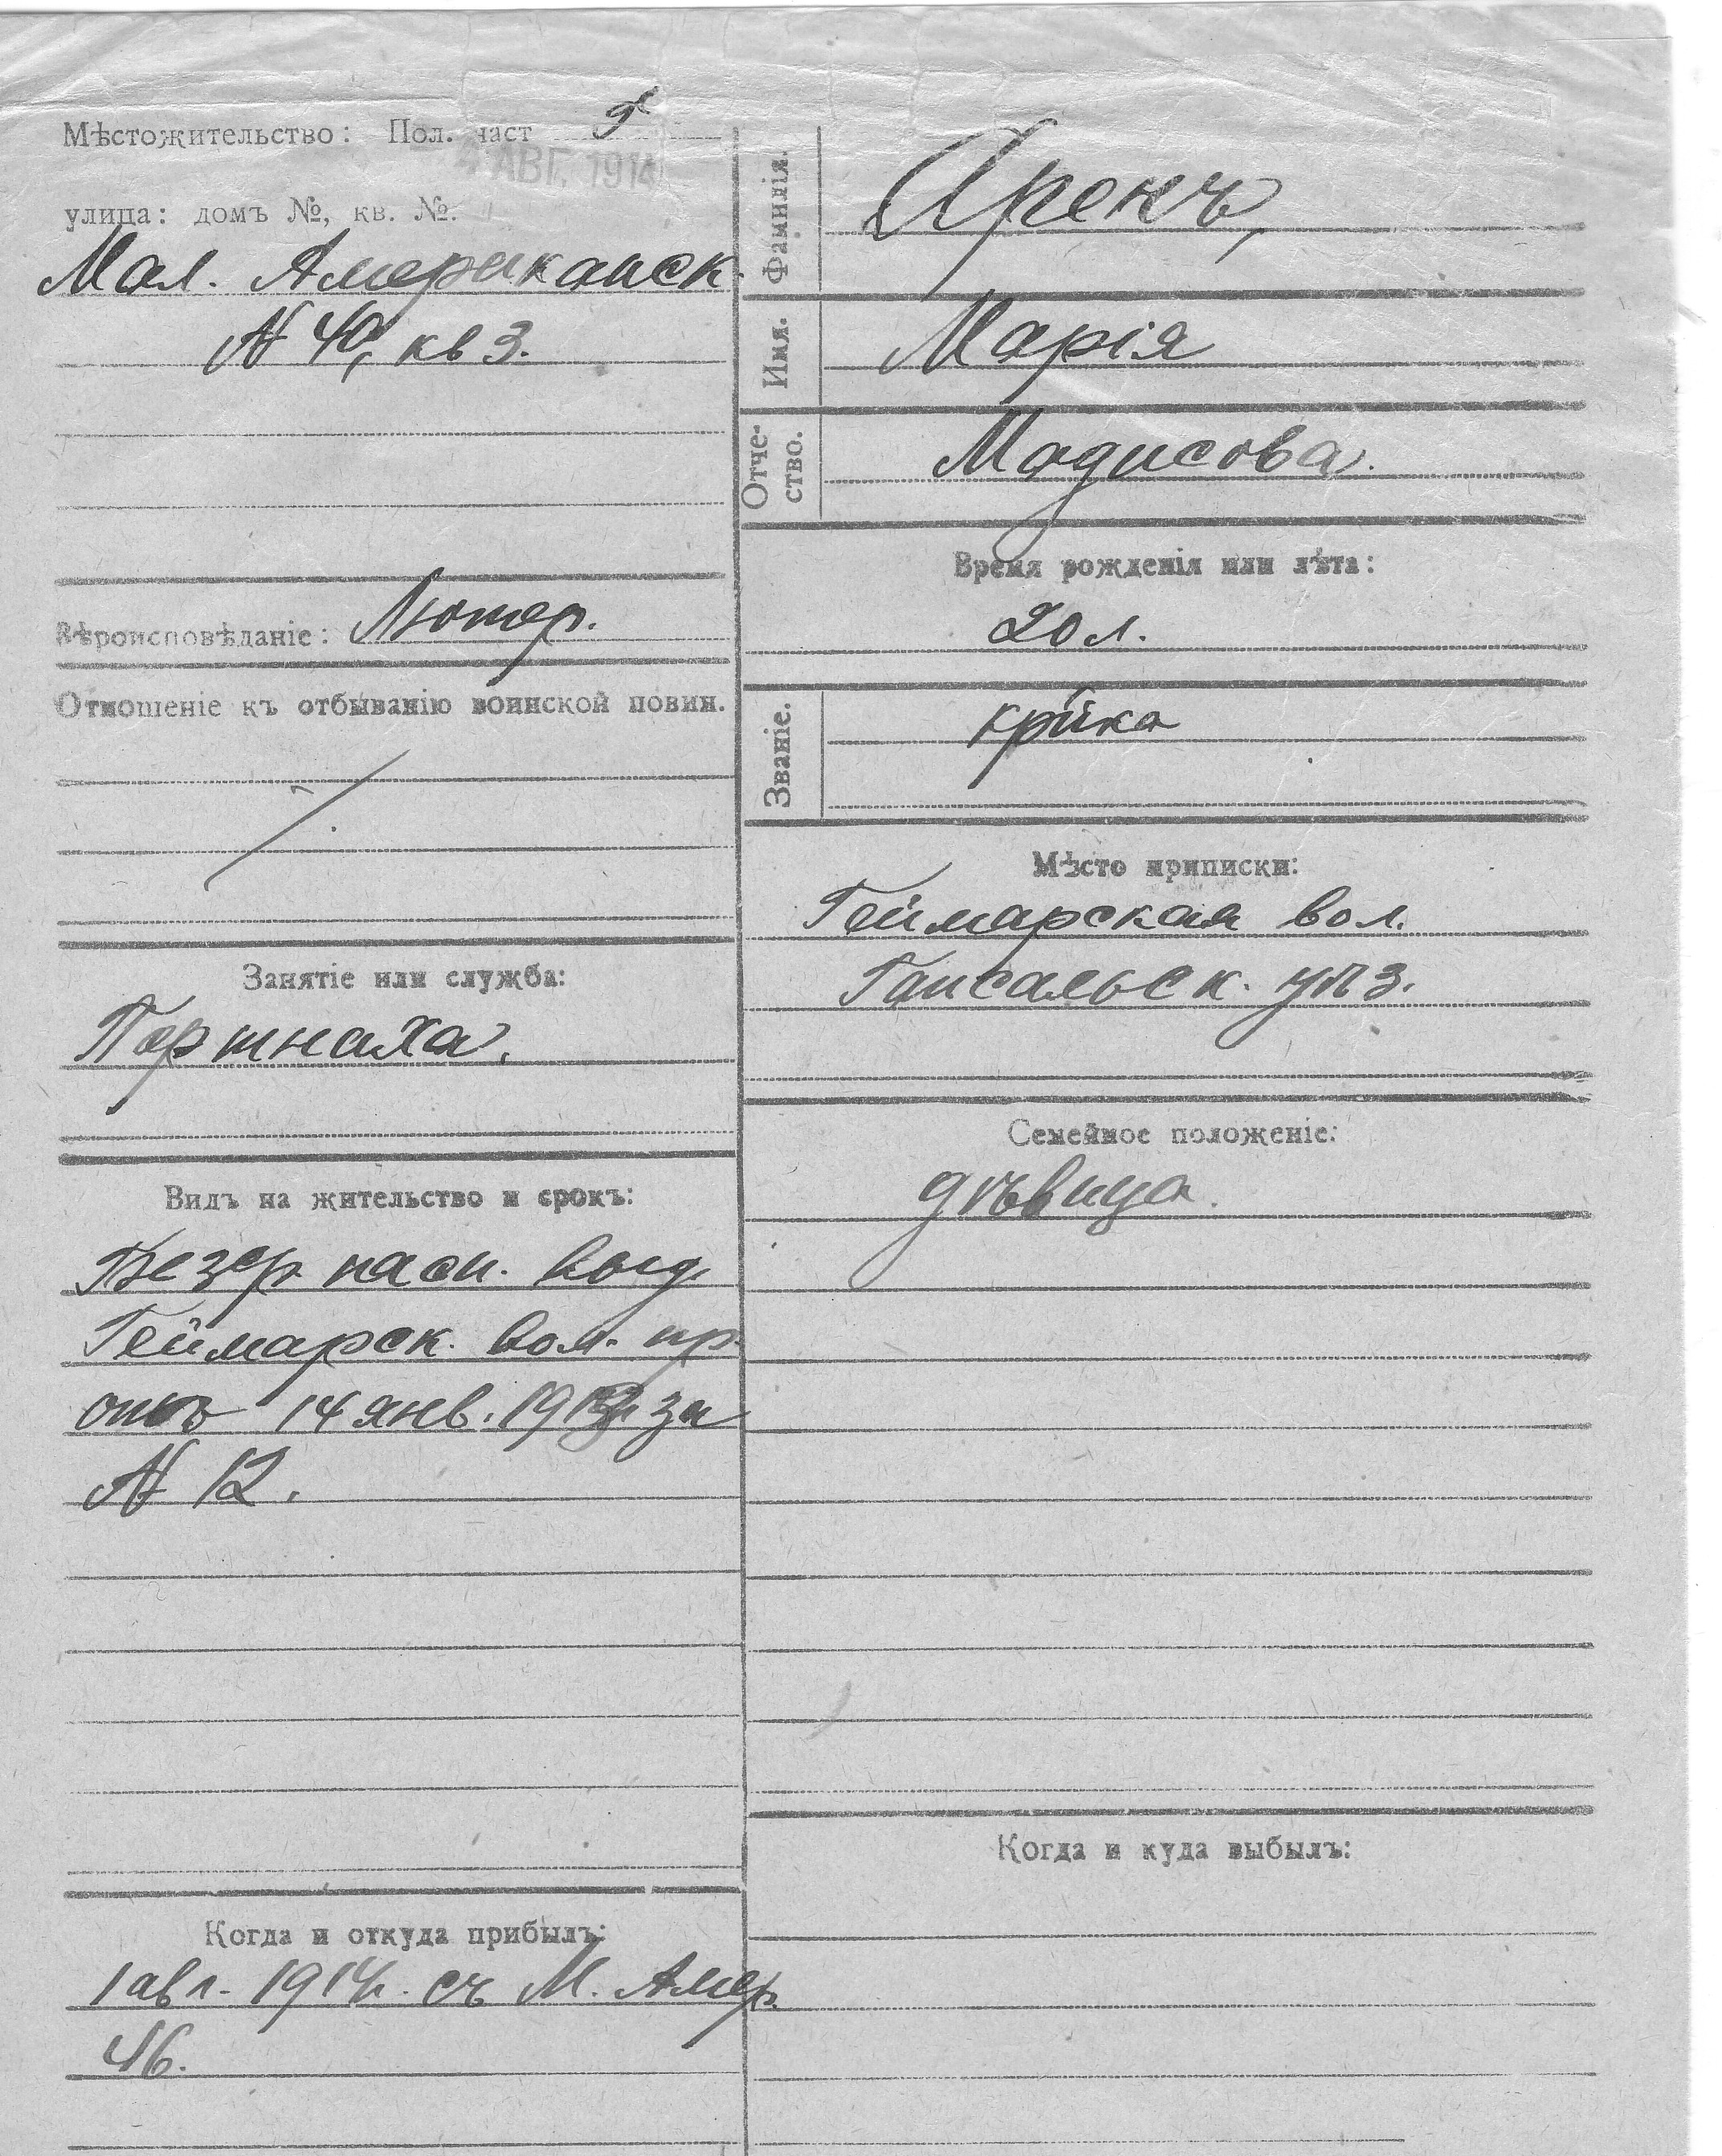 Мѣстожительство: Пол. част
4 АВГ. 1914
улица: домъ №, кв. №.
Мал. Американск.
№ 40, кв 3.
Вѣроисповѣданіе: Лютер.
Отношеніе къ отбыванію воинской повин.
Занятіе или служба:
Портниха.
Видъ на жительство и срокъ:
Безср. пасп. выд.
Геймарск. вол. пр.
отъ 14 янв. 1913 г. за
№ 12.
Когда и откуда прибылъ:
1 авг. 1914 г. съ М. Амер.
46.
Фамилія. Ярекъ,
Имя. Марія
Отче-
ство. Мадисова.
Время рожденія или лѣта:
20 л.
Званіе. кр-ика
Мѣсто приписки:
Геймарская вол.
Гапсальск. уѣз.
Семейное положеніе:
дѣвица.
Когда и куда выбылъ: